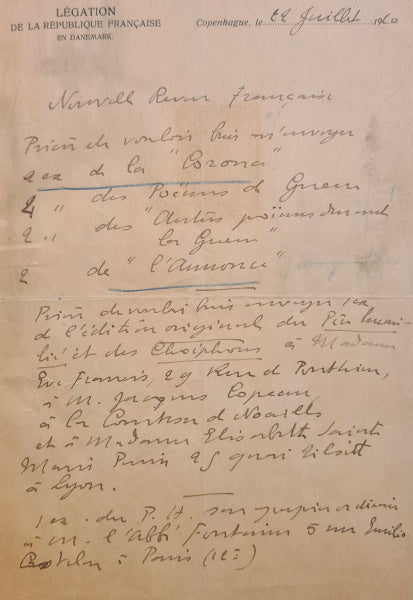 LÉGATION
DE LA RÉPUBLIQUE FRANÇAISE
EN DANEMARK.
Copenhague, le 22 Juillet 1920
Nouvelle Revue Française
Prière de vouloir bien m'envoyer
2 ex de la "Corona"
2 " des Poëmes de Guerre
2 " des "Autres poëmes durant
la Guerre"
2 de "l'Annonce"
Prière de vouloir bien envoyer 1 ex
de l'édition originale du Père humi-
lié et des Choéphores à Madame
Eve Francis, 29 Rue de Ponthieu,
à M. Jacques Copeau,
à la Comtesse de Noailles
et à Madame Elisabeth Sainte
Marie Perrin 25 quai Tilsitt
à Lyon.
1 ex. du P. H. sur papier ordinaire
à M. l'Abbé Fontaine 5 rue Emilio
Castelar à Paris (12e)